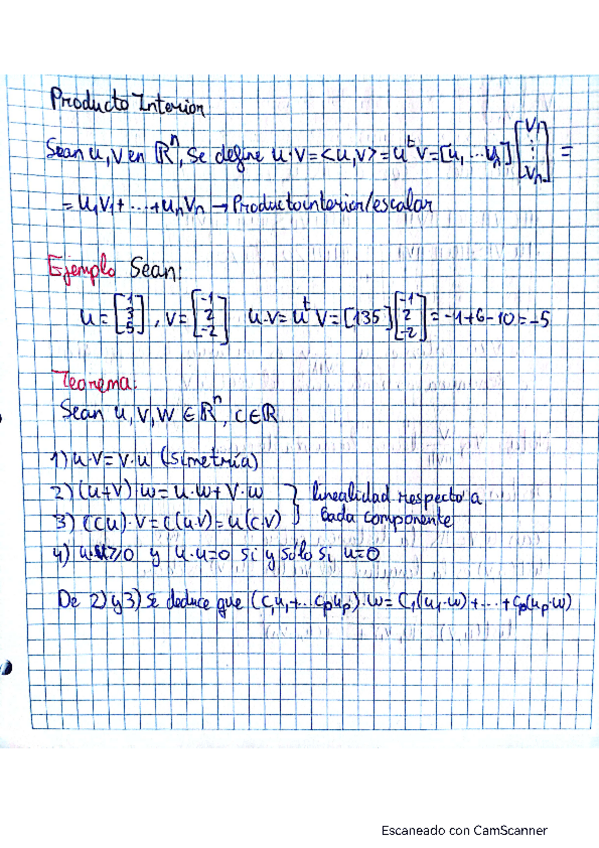 Producto Interior
Sean u, v en ℝⁿ, se define u·v = <u,v> = uᵗv = [u₁ ... uₙ] [v₁ ⋮ vₙ] =
= u₁v₁ + ... + uₙvₙ → Producto interior/escalar
Ejemplo Sean:
u = [1 3 5], v = [-1 2 -2] u·v = uᵗv = [1 3 5] [-1 2 -2] = -1+6-10 = -5
Teorema:
Sean u, v, w ∈ ℝⁿ, c ∈ ℝ
1) u·v = v·u (simetría)
2) (u+v) w = u·w + v·w } linealidad respecto a
3) (cu)·v = c(u·v) = u(c·v) } cada componente
4) u·u ≥ 0 y u·u = 0 si y sólo si u = 0
De 2) y 3) se deduce que (c₁u₁ + ... cₚuₚ)·w = c₁(u₁·w) + ... + cₚ(uₚ·w)
Escaneado con CamScanner